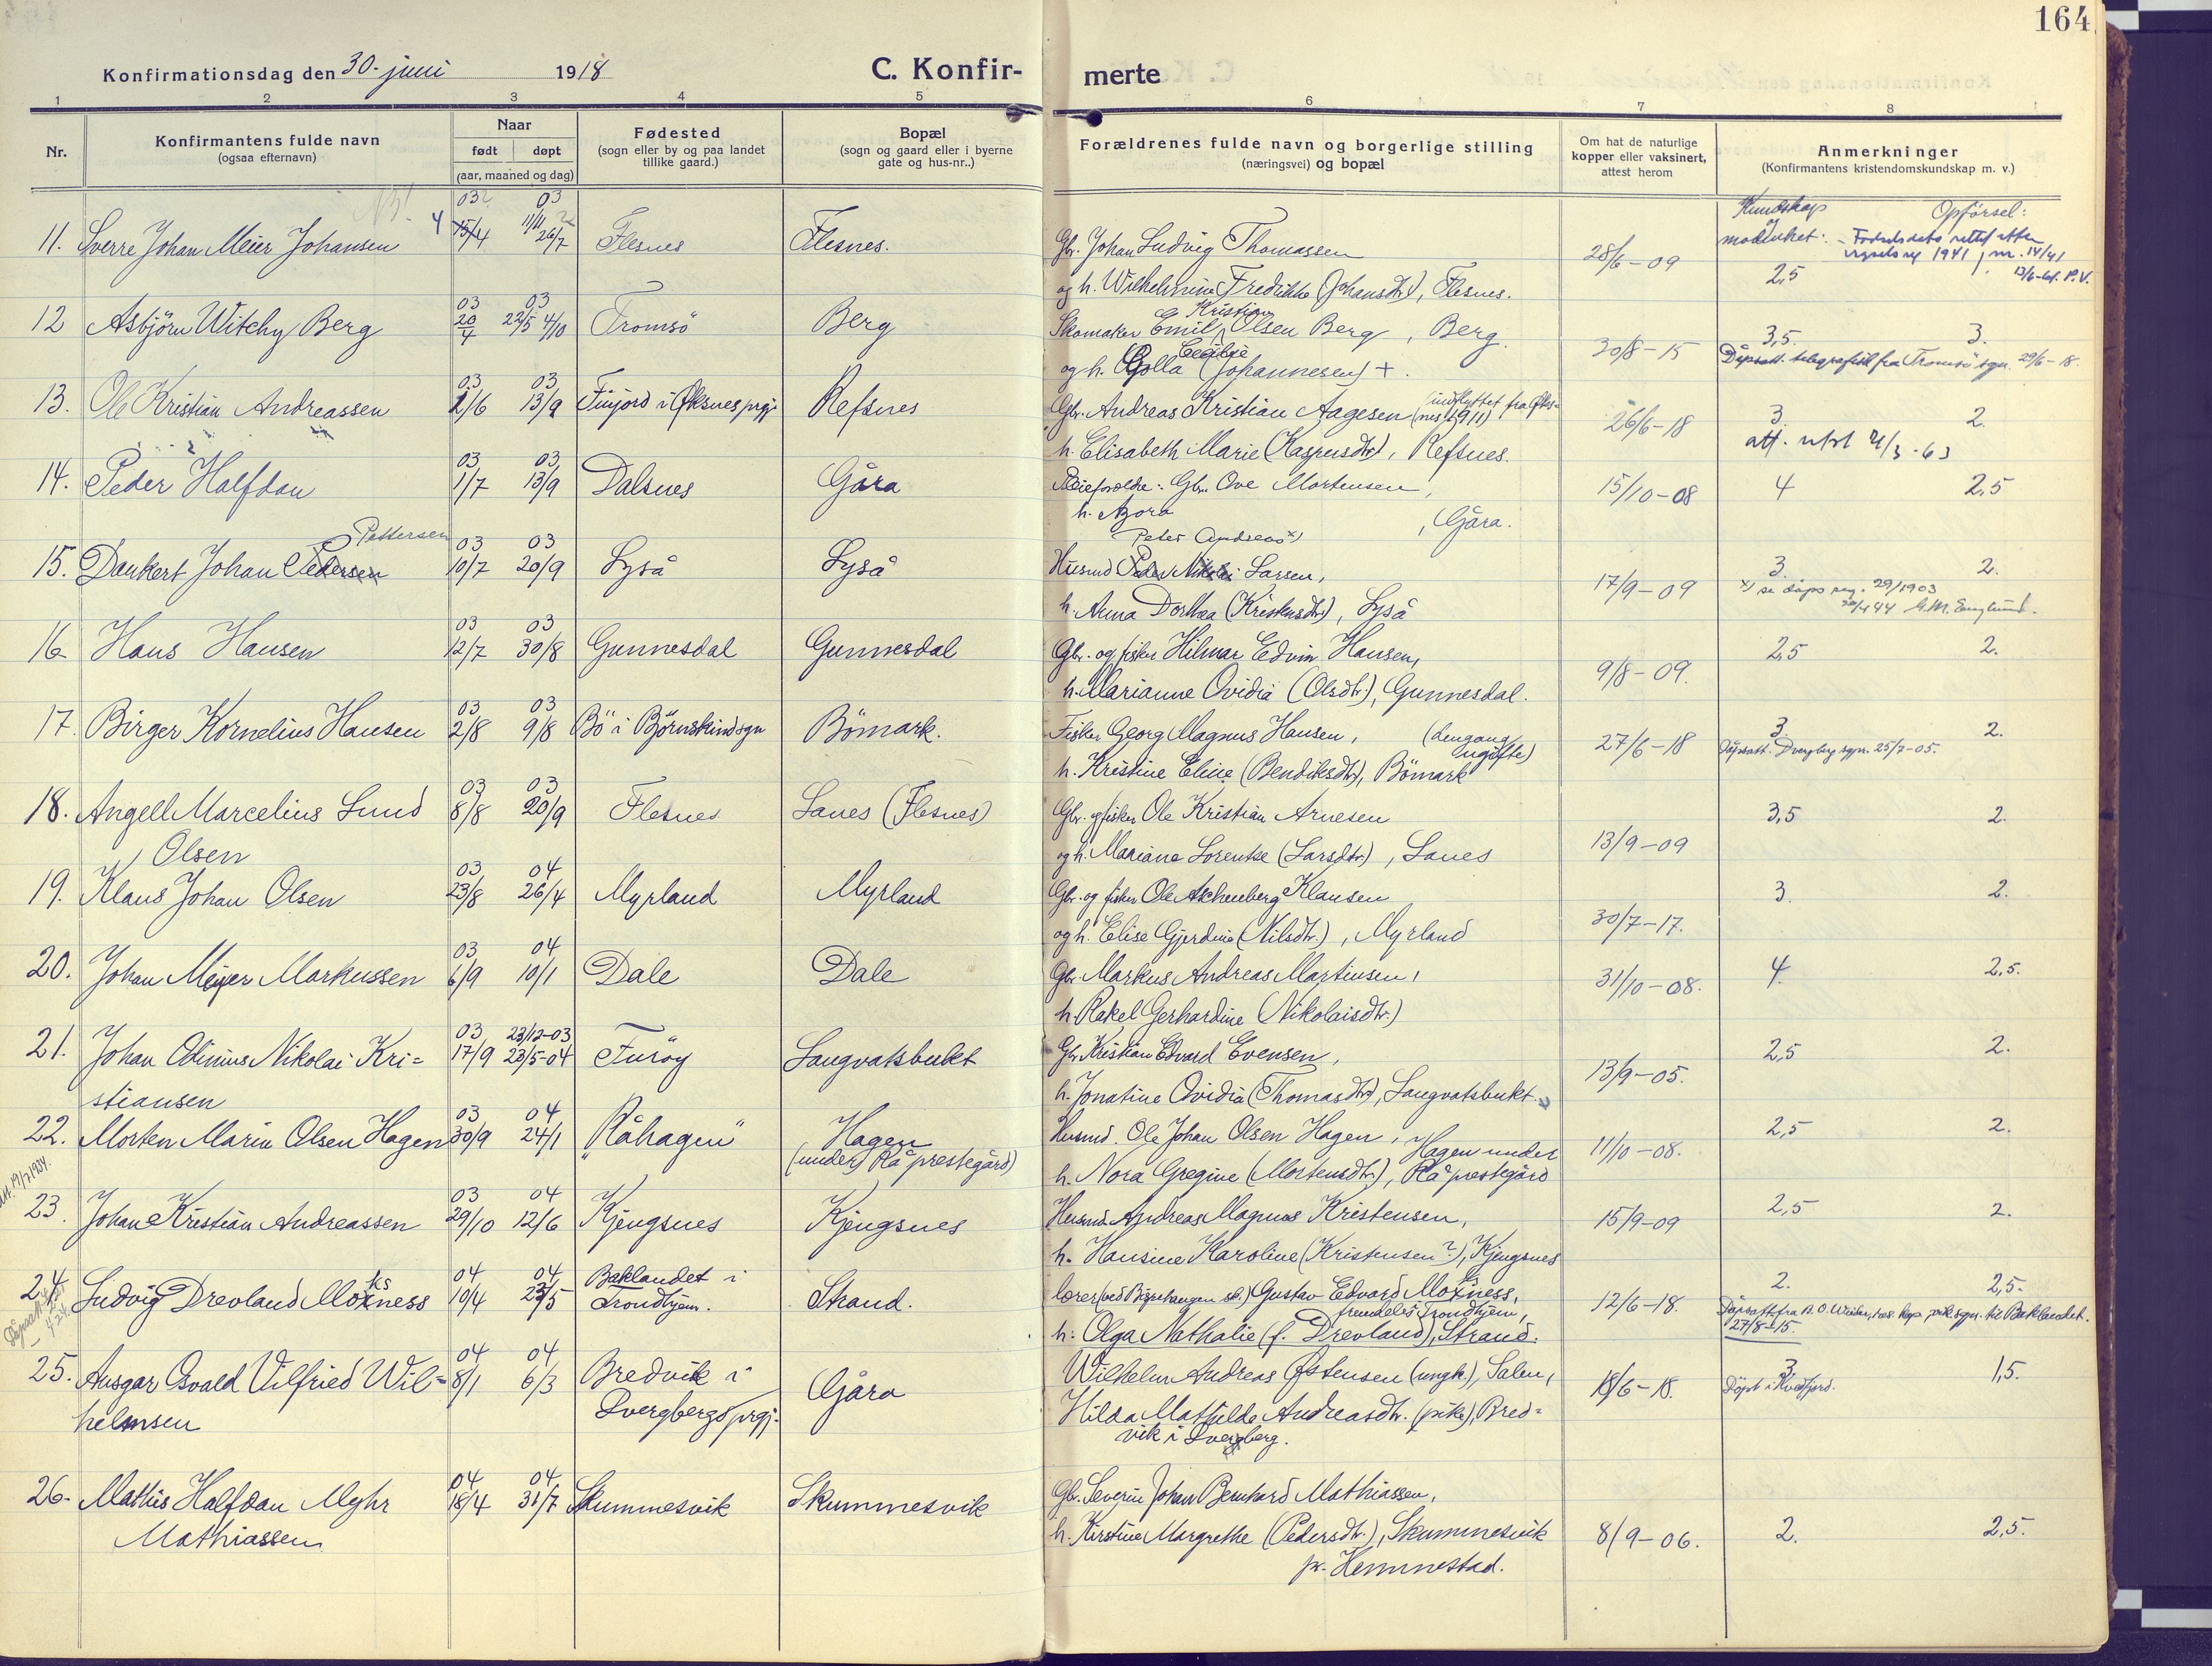 164
Konfirmationsdag den 30. juni 1918
C. Konfirmerte
1 2 3 4 5 6 7 8
Nr.
Konfirmantens fulde navn
(ogsaa efternavn)
Naar
født døpt
(aar, maaned og dag)
Fødested
(sogn eller by og paa landet
tillike gaard.)
Bopæl
(sogn og gaard eller i byerne
gate og hus-nr..)
Forældrenes fulde navn og borgerlige stilling
(næringsvei) og bopæl
Om hat de naturlige
kopper eller vaksinert,
attest herom
Anmerkninger
(Konfirmantens kristendomskundskap m. v.)
Kundskap Opførsel:
11. Sverre Johan Meier Johansen 03 4 03 26/7 Flesnes Flesnes.
Gbr. Johan Ludvig Thomassen
og h. Wilhelmine Fredrikke (Johansdtr), Flesnes.
28/6-09
2,5
12 Asbjörn Witchy Berg 03 20/4 03 22/5 4/10 Tromsö Berg
Skomaker Emil Kristian Olsen Berg, Berg.
og h. Golla Cecilie (Johannesen) +.
30/8-15
3,5. 3.
Dåpsatt. telegrafisk fra Tromsö sgn. 29/6-18.
13. Ole Kristian Andreassen 03 2/6 03 13/9 Finjord i Øksnes prgj. Refsnes
Gbr. Andreas Kristian Aagesen (indflyttet fra Øks-
nes 1911)
h. Elisabeth Marie (Kaspersdtr), Refsnes.
26/6-18
3. 2.
att. utst 4/3-63
14. Peder Halfdan 03 1/7 03 13/9 Dalsnes Gåra
Pleieforeldre: Gbr. Ove Mortensen,
h. Nora, Gåra.
15/10-08
4 2,5
15. Dankert Johan Pedersen Pettersen 03 10/7 03 20/9 Lyså Lyså
Peter Andreas x)
Husmd Peder Nikolai Larsen,
h. Anna Dorthea (Kristensdtr), Lyså
17/9-09
3. 2.
x) se dåps reg. 29/1903
16. Hans Hansen 03 12/7 03 30/8 Gunnesdal Gunnesdal
Gbr. og fisker Hilmar Edvin Hansen,
h. Marianne Ovidia (Olsdtr.), Gunnesdal.
9/8-09.
2,5 2.
17. Birger Kornelius Hansen 03 2/8 03 9/8 Bö i Björnskind sgn Bömark.
Fisker Georg Magnus Hansen, (dengang
ugifte)
h. Kristine Eline (Bendiksdtr), Bömark
27/6-18
3. 2.
Dåpsatt. Dverberg sgn. 25/7-05.
18. Angell Marcelius Lund
Olsen 03 8/8 03 20/9 Flesnes Lanes (Flesnes)
Gbr. og fisker Ole Kristian Arnesen
og h. Mariane Lorentse (Larsdtr.), Lanes
13/9-09
3,5 2.
19. Klaus Johan Olsen 03 23/8 04 26/4 Myrland Myrland
Gbr. og fisker Ole Aschenberg Klausen
og h. Elise Gjerdine (Nilsdtr.), Myrland
30/7-17.
3. 2.
20. Johan Meyer Markussen 03 6/9 04 10/1 Dale Dale
Gbr. Markus Andreas Martinsen,
h. Rakel Gerhardine (Nikolaisdtr.)
31/10-08.
4. 2,5.
21. Johan Odinius Nikolai Kri=
stiansen 03 17/9 23/12-03 23/5-04 Furöy Langvatsbukt
Gbr. Kristian Edvard Evensen,
h. Jonatine Ovidia (Thomasdtr), Langvatsbukt.
13/9-05.
2,5 2.
22. Morten Marin Olsen Hagen 03 30/9 04 24/1 "Råhagen" Hagen
(under Rå prestegård)
Husmd. Ole Johan Olsen Hagen, Hagen under
h. Nora Gregine (Mortensdtr.), Rå prestegård
11/10-08.
2,5 2.
att. 19/7 1934.
23. Johan Kristian Andreassen 03 29/10 04 12/6 Kjengsnes Kjengsnes
Husmd. Andreas Magnus Kristensen,
h. Hansine Karoline (Kristensen?), Kjengsnes
15/9-09
2,5 2.
24. Ludvig Drevland Moxness ks 04 10/4 04 23/5 Baklandet i
Trondhjem. Strand.
lærer (ved Bispehaugen sk.) Gustav Edvard Moxness,
fremdeles Trondhjem,
h. Olga Nathalie (f. Drevland), Strand.
12/6-18.
2. 2,5.
27/8-15.
25. Ansgar Osvald Vilfried Wil=
helmsen 04 8/1 04 6/3 Bredvik i
Dverbergs prgj. Gåra
Wilhelm Andreas Østensen (ungk.), Salen,
Hilda Mathilde Andreasdtr. (pike), Bred=
vik i Dverberg.
18/6-18.
3. 1,5.
Döpt i Kvæfjord.
26. Mathis Halfdan Myhr
Mathiassen 04 18/4 04 31/7 Skummesvik Skummesvik
Gbr. Severin Johan Bernhard Mathiassen,
h. Kirstine Margrethe (Pedersdtr.), Skummesvik
pr. Hemmestad.
8/9-06.
2. 2,5.